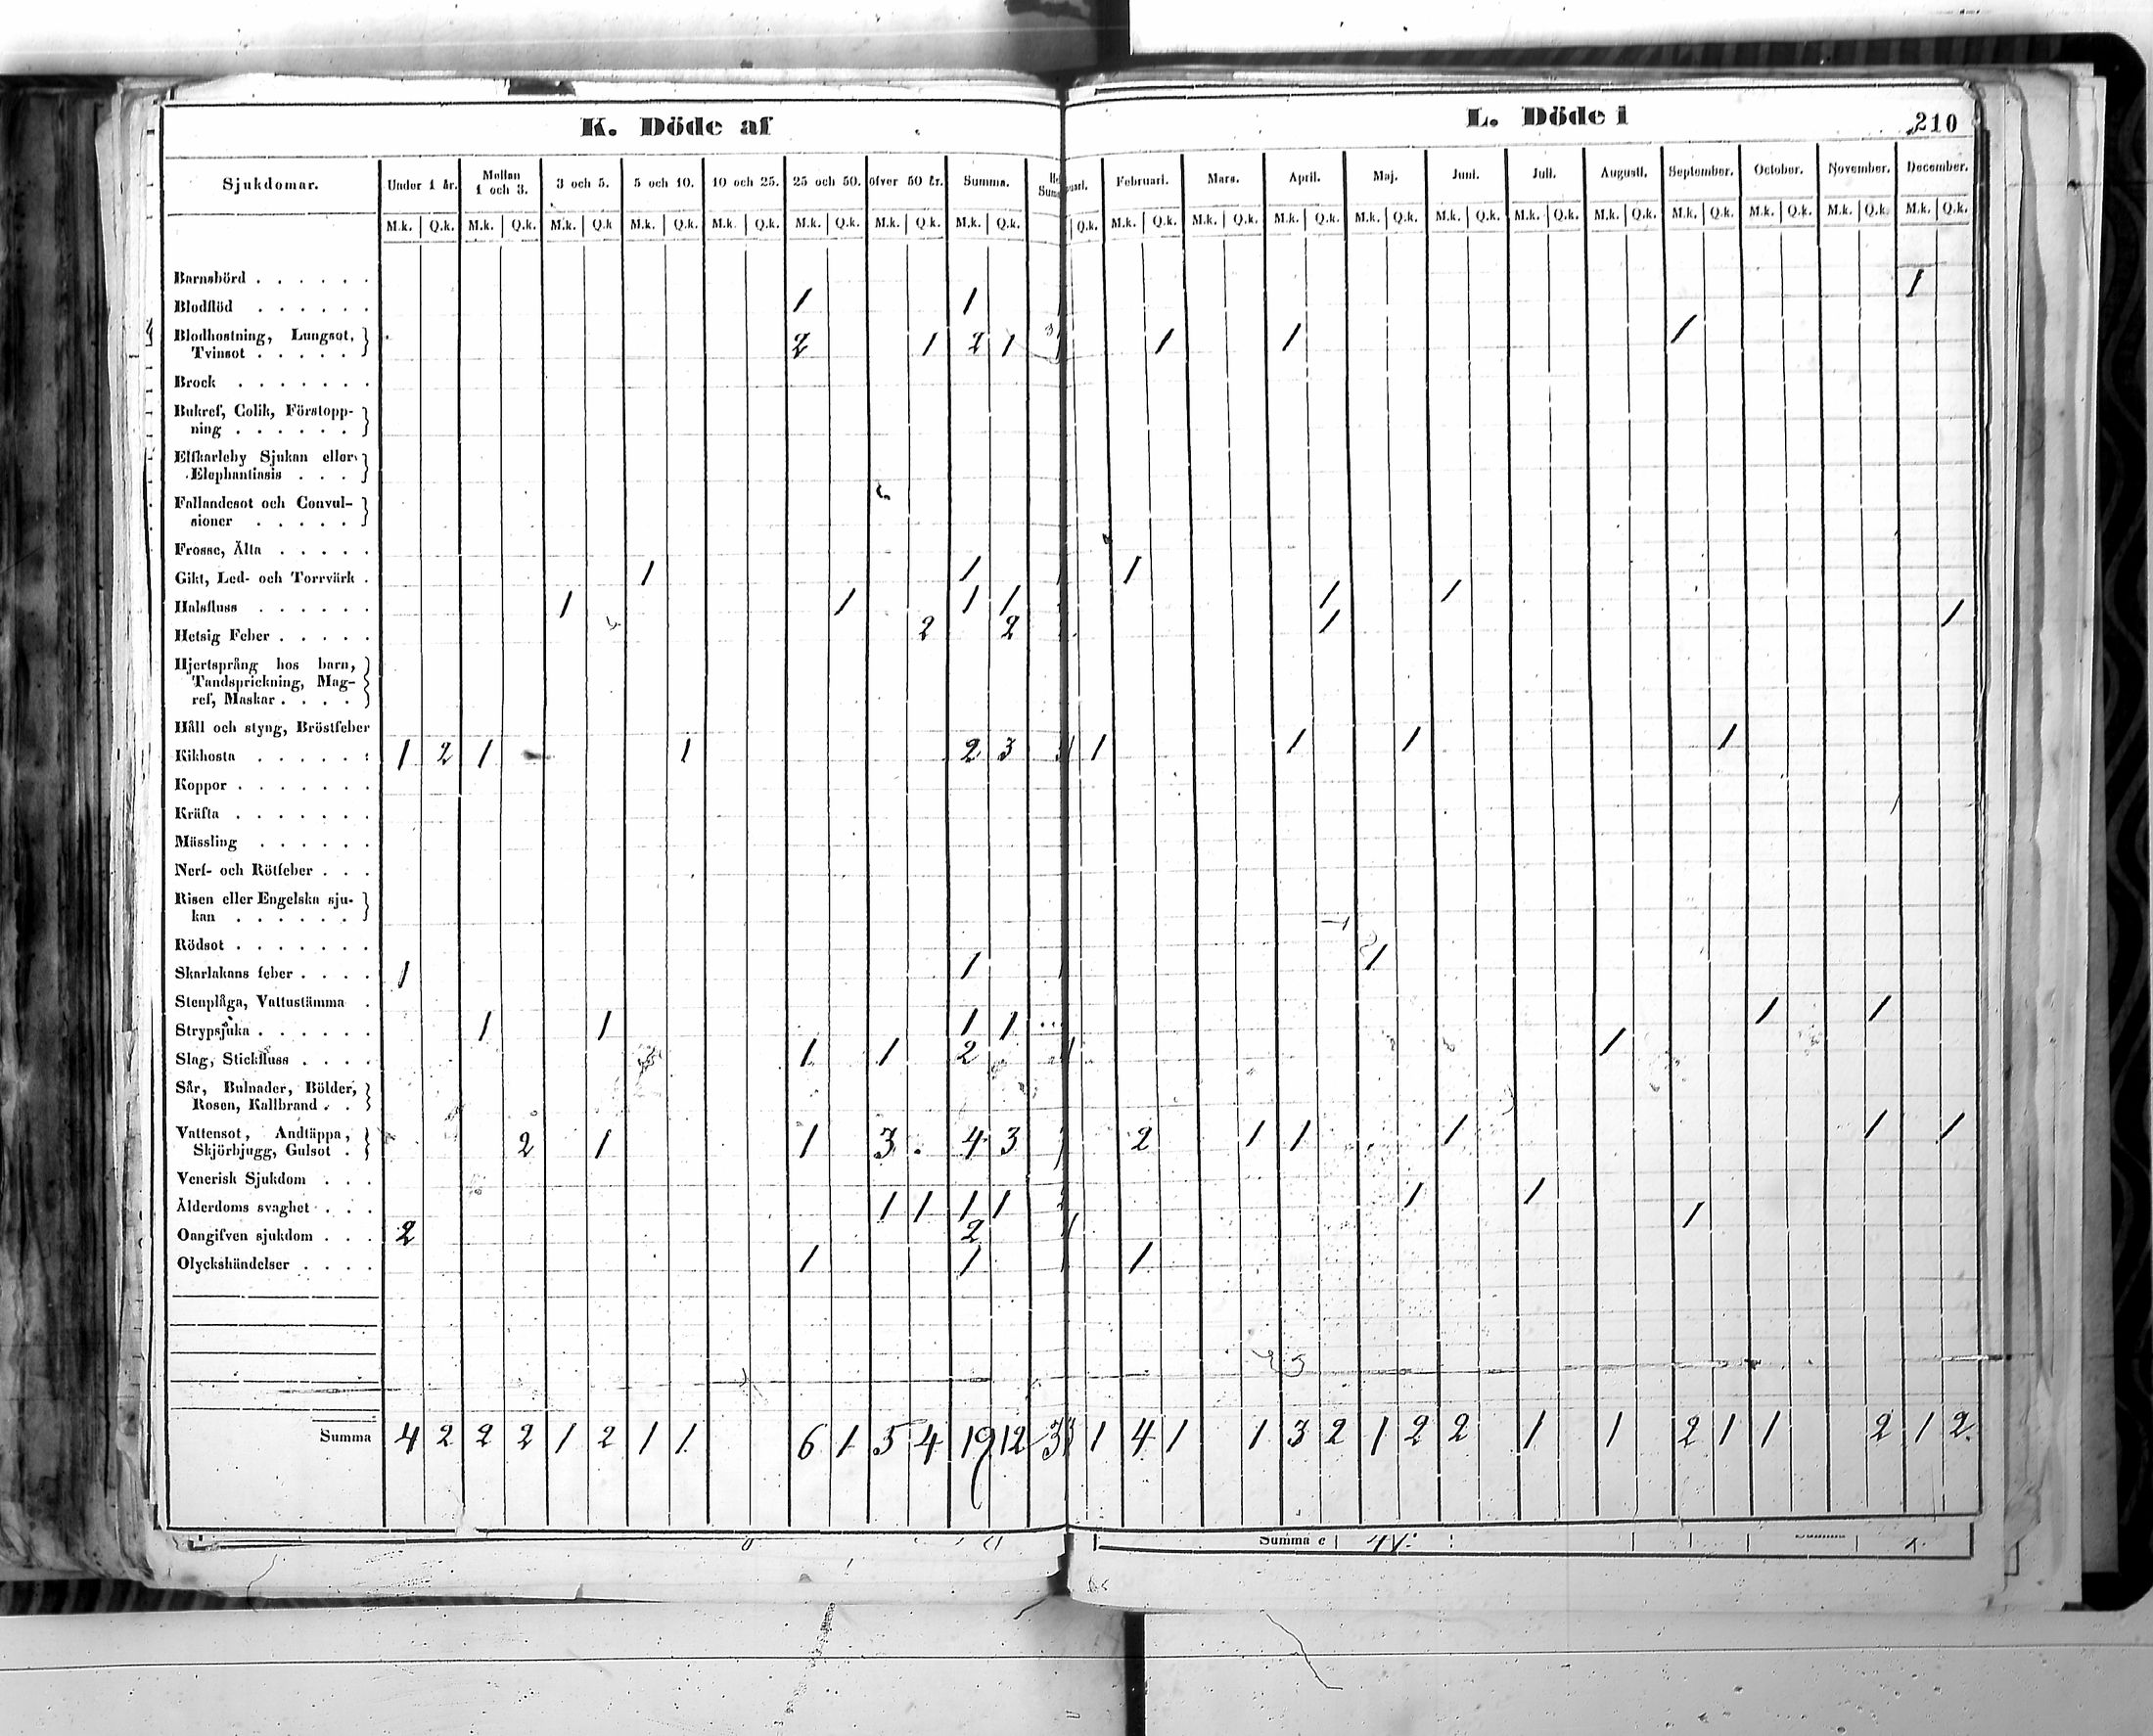 K. Döde af
L. Döde i
210
Sjukdomar. Under 1 år. Mellan 1 och 3. 3 och 5. 5 och 10. 10 och 25. 25 och 50. öfver 50 år. Summa. Februari. Mars. April. Maj. Juni. Juli. Augusti. September. October. November. December.
M.k. Q.k. M.k. Q.k. M.k. Q.k M.k. Q.k. M.k. Q.k. M.k. Q.k. M.k. Q.k. M.k. Q.k. Q.k. M.k. Q.k. M.k. Q.k. M.k. Q.k. M.k. Q.k. M.k. Q.k. M.k. Q.k. M.k. Q.k. M.k. Q.k. M.k. Q.k. M.k. Q.k. M.k. Q.k.
Barnsbörd . . . . . .
Blodflöd . . . . . . 1 1 1
Blodhostning, Lungsot,
Tvinsot . . . . . 2 1 2 1 1 1 1
Brock . . . . . . .
Bukref, Colik, Förstopp-
ning . . . . . .
Elfkarleby Sjukan eller
Elephantiasis . . .
Fallandesot och Convul-
sioner . . . . .
Frosse, Älta . . . . .
Gikt, Led- och Torrvärk . 1 1 1
Halsfluss . . . . . . 1 1 1 1 1 1
Hetsig Feber . . . . . 2 2 1 1
Hjertsprång hos barn,
Tandsprickning, Mag-
ref, Maskar . . . .
Håll och styng, Bröstfeber
Kikhosta . . . . . . 1 2 1 1 2 3 1 1 1 1 1
Koppor . . . . . . .
Kräfta . . . . . . .
Mässling . . . . . .
Nerf- och Rötfeber . . .
Risen eller Engelska sju-
kan . . . . . .
Rödsot . . . . . . .
Skarlakans feber . . . . 1 1 1
Stenplåga, Vattustämma .
Strypsjuka . . . . . . 1 1 1 1 1 1
Slag, Stickfluss . . . . 1 1 2 1 1
Sår, Bulnader, Bölder,
Rosen, Kallbrand . .
Vattensot, Andtäppa,
Skjörbjugg, Gulsot . 2 1 1 3 4 3 2 1 1 1 1 1
Venerisk Sjukdom . . .
Ålderdoms svaghet . . . 1 1 1 1 1 1
Oangifven sjukdom . . . 2 2 1 1
Olyckshändelser . . . . 1 1 1
Summa 4 2 2 2 1 2 1 1 6 1 5 4 19 12 3 1 4 1 1 3 2 1 2 2 1 1 2 1 1 2 1 2
Summa c